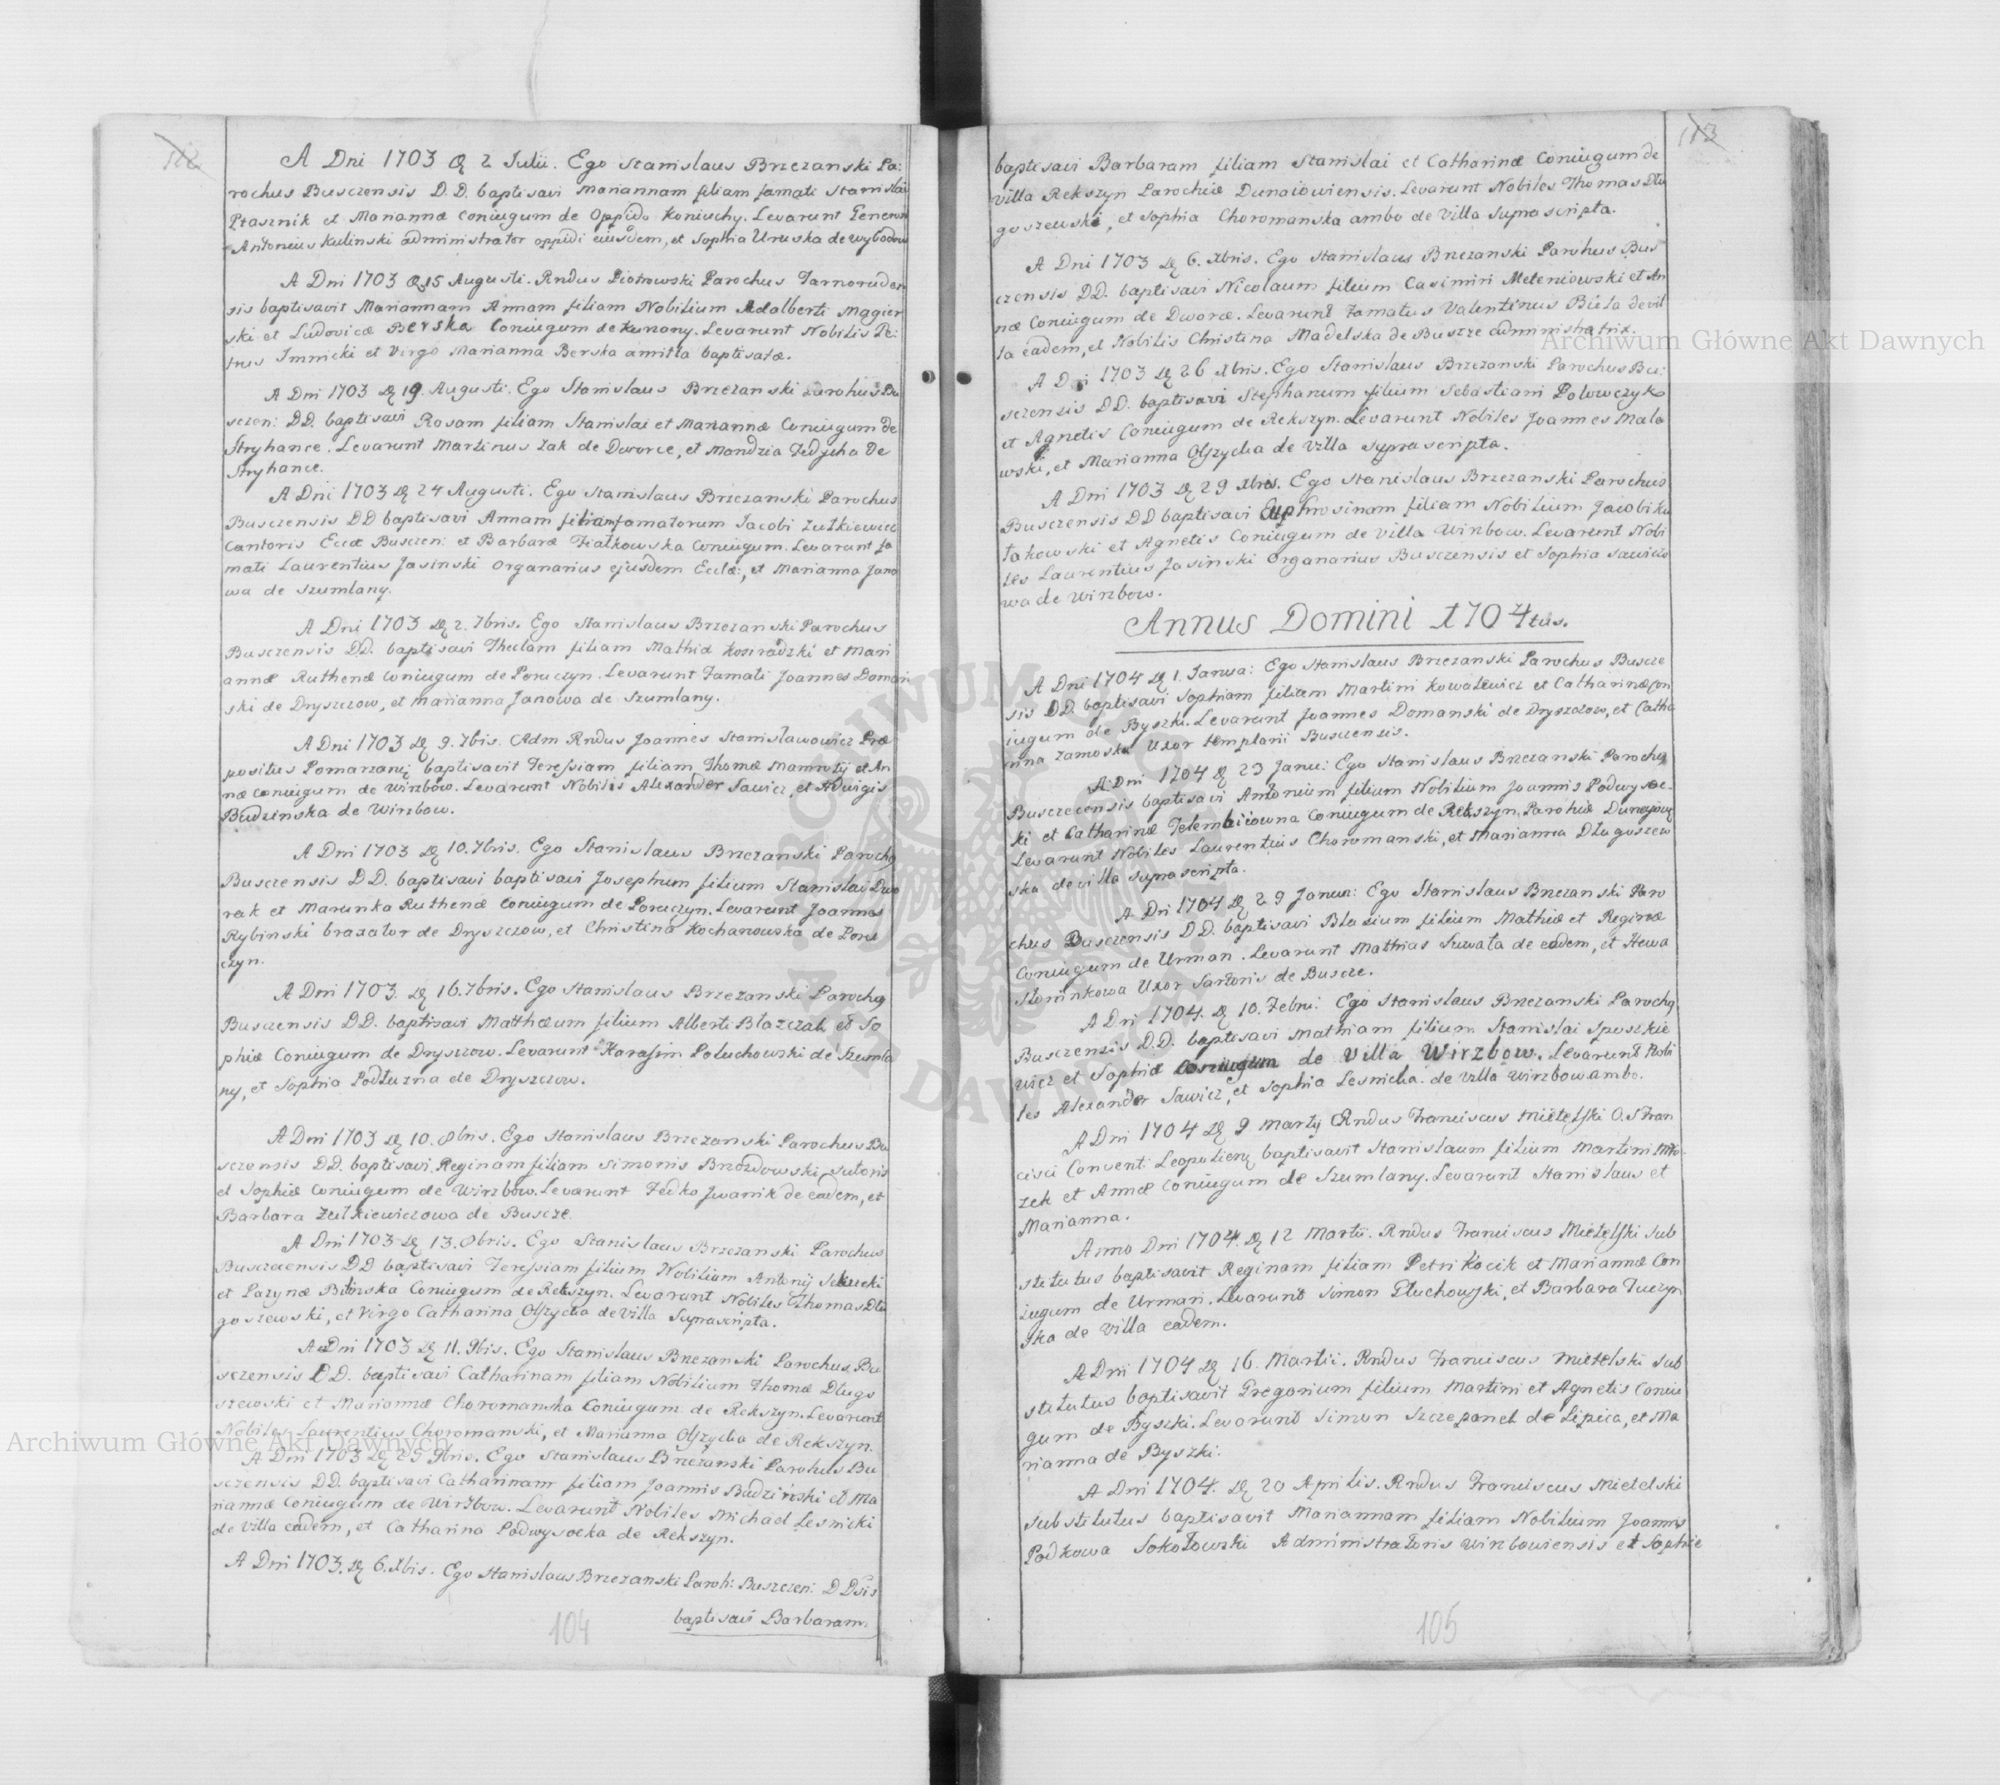 112
A Dni 1703 d 2 Julii. Ego Stanislaus Brzezanski Pa:
rochus Busczensis D.D. baptisavi Mariannam filiam famati Stanislai
Ptasznik et Mariannæ Coniugum de Oppido Koniuchy. Levarunt Generosi
Antonius Kulinski administrator oppidi eiusdem, et Sophia Uruska de
A Dni 1703 d 15 Augusti. Rndus Piotrowski Parochus Tarnoruden
sis baptisavit Mariannam Annam filiam Nobilium Adalberti Magier
ski et Ludovicæ Berska Coniugum de Kunony. Levarunt Nobilis Pe:
trus Imnicki et Virgo Marianna Berska amitta baptisatæ.
A Dni 1703 d 19 Augusti. Ego Stanislaus Brzezanski Parohus Bu
sczen: DD. baptisavi Rosam filiam Stanislai et Mariannæ Coniugum de
Stryhance. Levarunt Martinus Zak de Dworce, et Mandzia Fedjuha De
Stryhance.
A Dni 1703 d 24 Augusti. Ego Stanislaus Brzezanski Parochus
Busczensis DD baptisavi Annam filiam famatorum Jacobi Zulkiewicz
Cantoris Eccæ Busczen: et Barbaræ Fialkowska Coniugum. Levarunt fa
mati Laurentius Jasinski Organarius ejusdem Ecclæ:, et Marianna Jano
wa de Szumlany.
A Dni 1703 d 2. 7bris. Ego Stanislaus Brzezanski Parochus
Busczensis DD. baptisavi Theclam filiam Mathiæ Konradzki et Mari
annæ Ruthenæ Coniugum de Poruczyn. Levarunt Famati Joannes Doman
ski de Dryszczow, et Marianna Janowa de Szumlany.
A Dni 1703 d 9. 7bris. Adm Rndus Joannes Stanislawowicz Præ
positus Pomarzani baptisavit Teressiam filiam Thomæ Mamroty et An
næ Coniugum de Wirzbow. Levarunt Nobilis Alexander Sawicz, et Advigis
Budzinska de Wirzbow.
A Dni 1703 d 10. 7bris. Ego Stanislaus Brzezanski Paroch9
Busczensis DD. baptisavi baptisavi Josephum filium Stanislai Dwo
rak et Marunka Ruthenæ Coniugum de Poruczyn. Levarunt Joannes
Rybinski braxator de Dryszczow, et Christina Kochanowska de Poru
czyn.
A Dni 1703. d 16. 7bris. Ego Stanislaus Brzezanski Paroch9
Busczensis DD. baptisavi Matthæum filium Alberti Blazczak et So
phiæ Coniugum de Dryszczow. Levarunt Harasim Poluchowski de Szumla
ny, et Sophia Podluzna de Dryszczow.
A Dni 1703 d 10. 8bris. Ego Stanislaus Brzezanski Parochus Bu
sczensis DD. baptisavi Reginam filiam Simonis Brzozdowski Sutoris
et Sophiæ Coniugum de Wirzbow. Levarunt Fedko Jwanik de eadem, et
Barbara Zulkiewiczowa de Buscze.
A Dni 1703 d 13. 8bris. Ego Stanislaus Brzezanski Parochus
Busczecensis DD baptisavi Teressiam filium Nobilium Antonij
et Coniugum de Rekszyn. Levarunt Nobiles Thomas Dlu
goszewski, et Virgo Catharina Olszycka de Villa Suprascripta.
A Dni 1703 d 11. 9bris. Ego Stanislaus Brzezanski Parochus Bu
sczensis DD. baptisavi Catharinam filiam Nobilium Thomæ Dlugo
szewski et Mariannæ Choromanska Coniugum de Rekszyn. Levarunt
Nobiles Laurentius Choromanski, et Marianna Olszycka de Rekszyn.
A Dni 1703 d 25 9bris. Ego Stanislaus Brzezanski Parohus Bu
sczensis DD. baptisavi Catharinam filiam Joannis Budzinski et Ma
riannæ Coniugum de Wirzbow. Levarunt Nobiles Michael Lesnicki
de Villa eadem, et Catharina Podwysocka de Rekszyn.
A Dni 1703. d 6. Xbris. Ego Stanislaus Brzezanski Paroh: Busczen: D Dsis
baptisavi Barbaram.
104
113
baptisavi Barbaram filiam Stanislai et Catharinæ Coniugum de
villa Rekszyn Parochiæ Dunaiowiensis. Levarunt Nobiles Thomas Dlu
goszewski, et Sophia Choromanska ambo de Villa Suprascripta.
A Dni 1703 d 6. Xbris. Ego Stanislaus Brzezanski Parohus Bus
czensis DD. baptisavi Nicolaum filium Casimiri Meteniowski et An
næ Coniugum de Dworce. Levarunt Famatus Valentinus Biela de vil
la eadem, et Nobilis Christina Madelska de Buscze administratrix.
A Dni 1703 d 26 Xbris. Ego Stanislaus Brzezanski Parochus Bu:
sczensis DD. baptisavi Stephanum filium Sebastiani Polowczyk
et Agnetis Coniugum de Rekszyn. Levarunt Nobiles Joannes Mala
wski, et Marianna Olszycka de Villa Suprascripta.
A Dni 1703 d 29 Xbris. Ego Stanislaus Brzezanski Parochus
Busczensis DD baptisavi Euphrosinam filiam Nobilium Jacobi Ku
lakowski et Agnetis Coniugum de Villa Wirzbow. Levarunt Nobi
les Laurentius Jasinski Organarius Busczensis et Sophia Sawiczo
wa de Wirzbow.
Annus Domini 1704tus.
A Dni 1704 d 1. Janua: Ego Stanislaus Brzezanski Parochus Buscze
sis DD. baptisavi Sophiam filiam Martini Kowalewicz et Catharinæ Con
iugum de Byszki. Levarunt Joannes Domanski de Dryszczow, et Catha
rina Zamoska Uxor templarii Busczensis.
A Dni 1704 d 23 Janu: Ego Stanislaus Brzezanski Paroch9
Busczecensis baptisavi Antonium filium Nobilium Joannis Podwysoc-
ki et Catharinæ Coniugum de Rekszyn, Parohiæ
Levarunt Nobiles Laurentius Choromanski, et Marianna Dlugoszew
ska de villa suprascripta.
A Dni 1704 d 29 Janua: Ego Stanislaus Brzezanski Paro
chus Busczensis D.D. baptisavi Blasium filium Mathiæ et Reginæ
Coniugum de Urman. Levarunt Matthias Suwala de eadem, et Hewa
Sloninkowa Uxor Sartoris de Buscze.
A Dni 1704. d 10. Febru: Ego Stanislaus Brzezanski Paroch9
Busczensis D.D. baptisavi Mathiam filium Stanislai Spuszkie
wicz et Sophiæ Coniugum de Villa Wirzbow. Levarunt Nobi
les Alexander Sawicz, et Sophia Lesnicka. de Villa Wirzbow ambo.
A Dni 1704 d 9 Martij Rndus Franciscus Mietelski O. S Fran
cisci Convent: Leopoliens baptisavit Stanislaum filium Martini
zek et Annæ Coniugum de Szumlany. Levarunt Stanislaus et
Marianna.
Anno Dni 1704. d 12 Martii. Rndus Franciscus Mietelski Sub
stitutus baptisavit Reginam filiam Petri Kocik et Mariannæ Con
iugum de Urman. Levarunt Simon Gluchowski, et Barbara Tuczyn
ska de Villa eadem.
A Dni 1704 d 16. Martii. Rndus Franciscus Mietelski Sub
stitutus baptisavit Gregorium filium Martini et Agnetis Coniu
gum de Byszki. Levarunt Simon Szczepanek de Lipica, et Ma
rianna de Byszki.
A Dni 1704. d 20 Aprilis. Rndus Franciscus Mietelski
substitutus baptisavit Mariannam filiam Nobilium Joannis
Podkowa Sokolowski Administratoris Wirzbowiensis et Sophiæ
105
Archiwum Główne Akt Dawnych
Archiwum Główne Akt Dawnych
ARCHIWUM GŁÓWNE AKT DAWNYCH